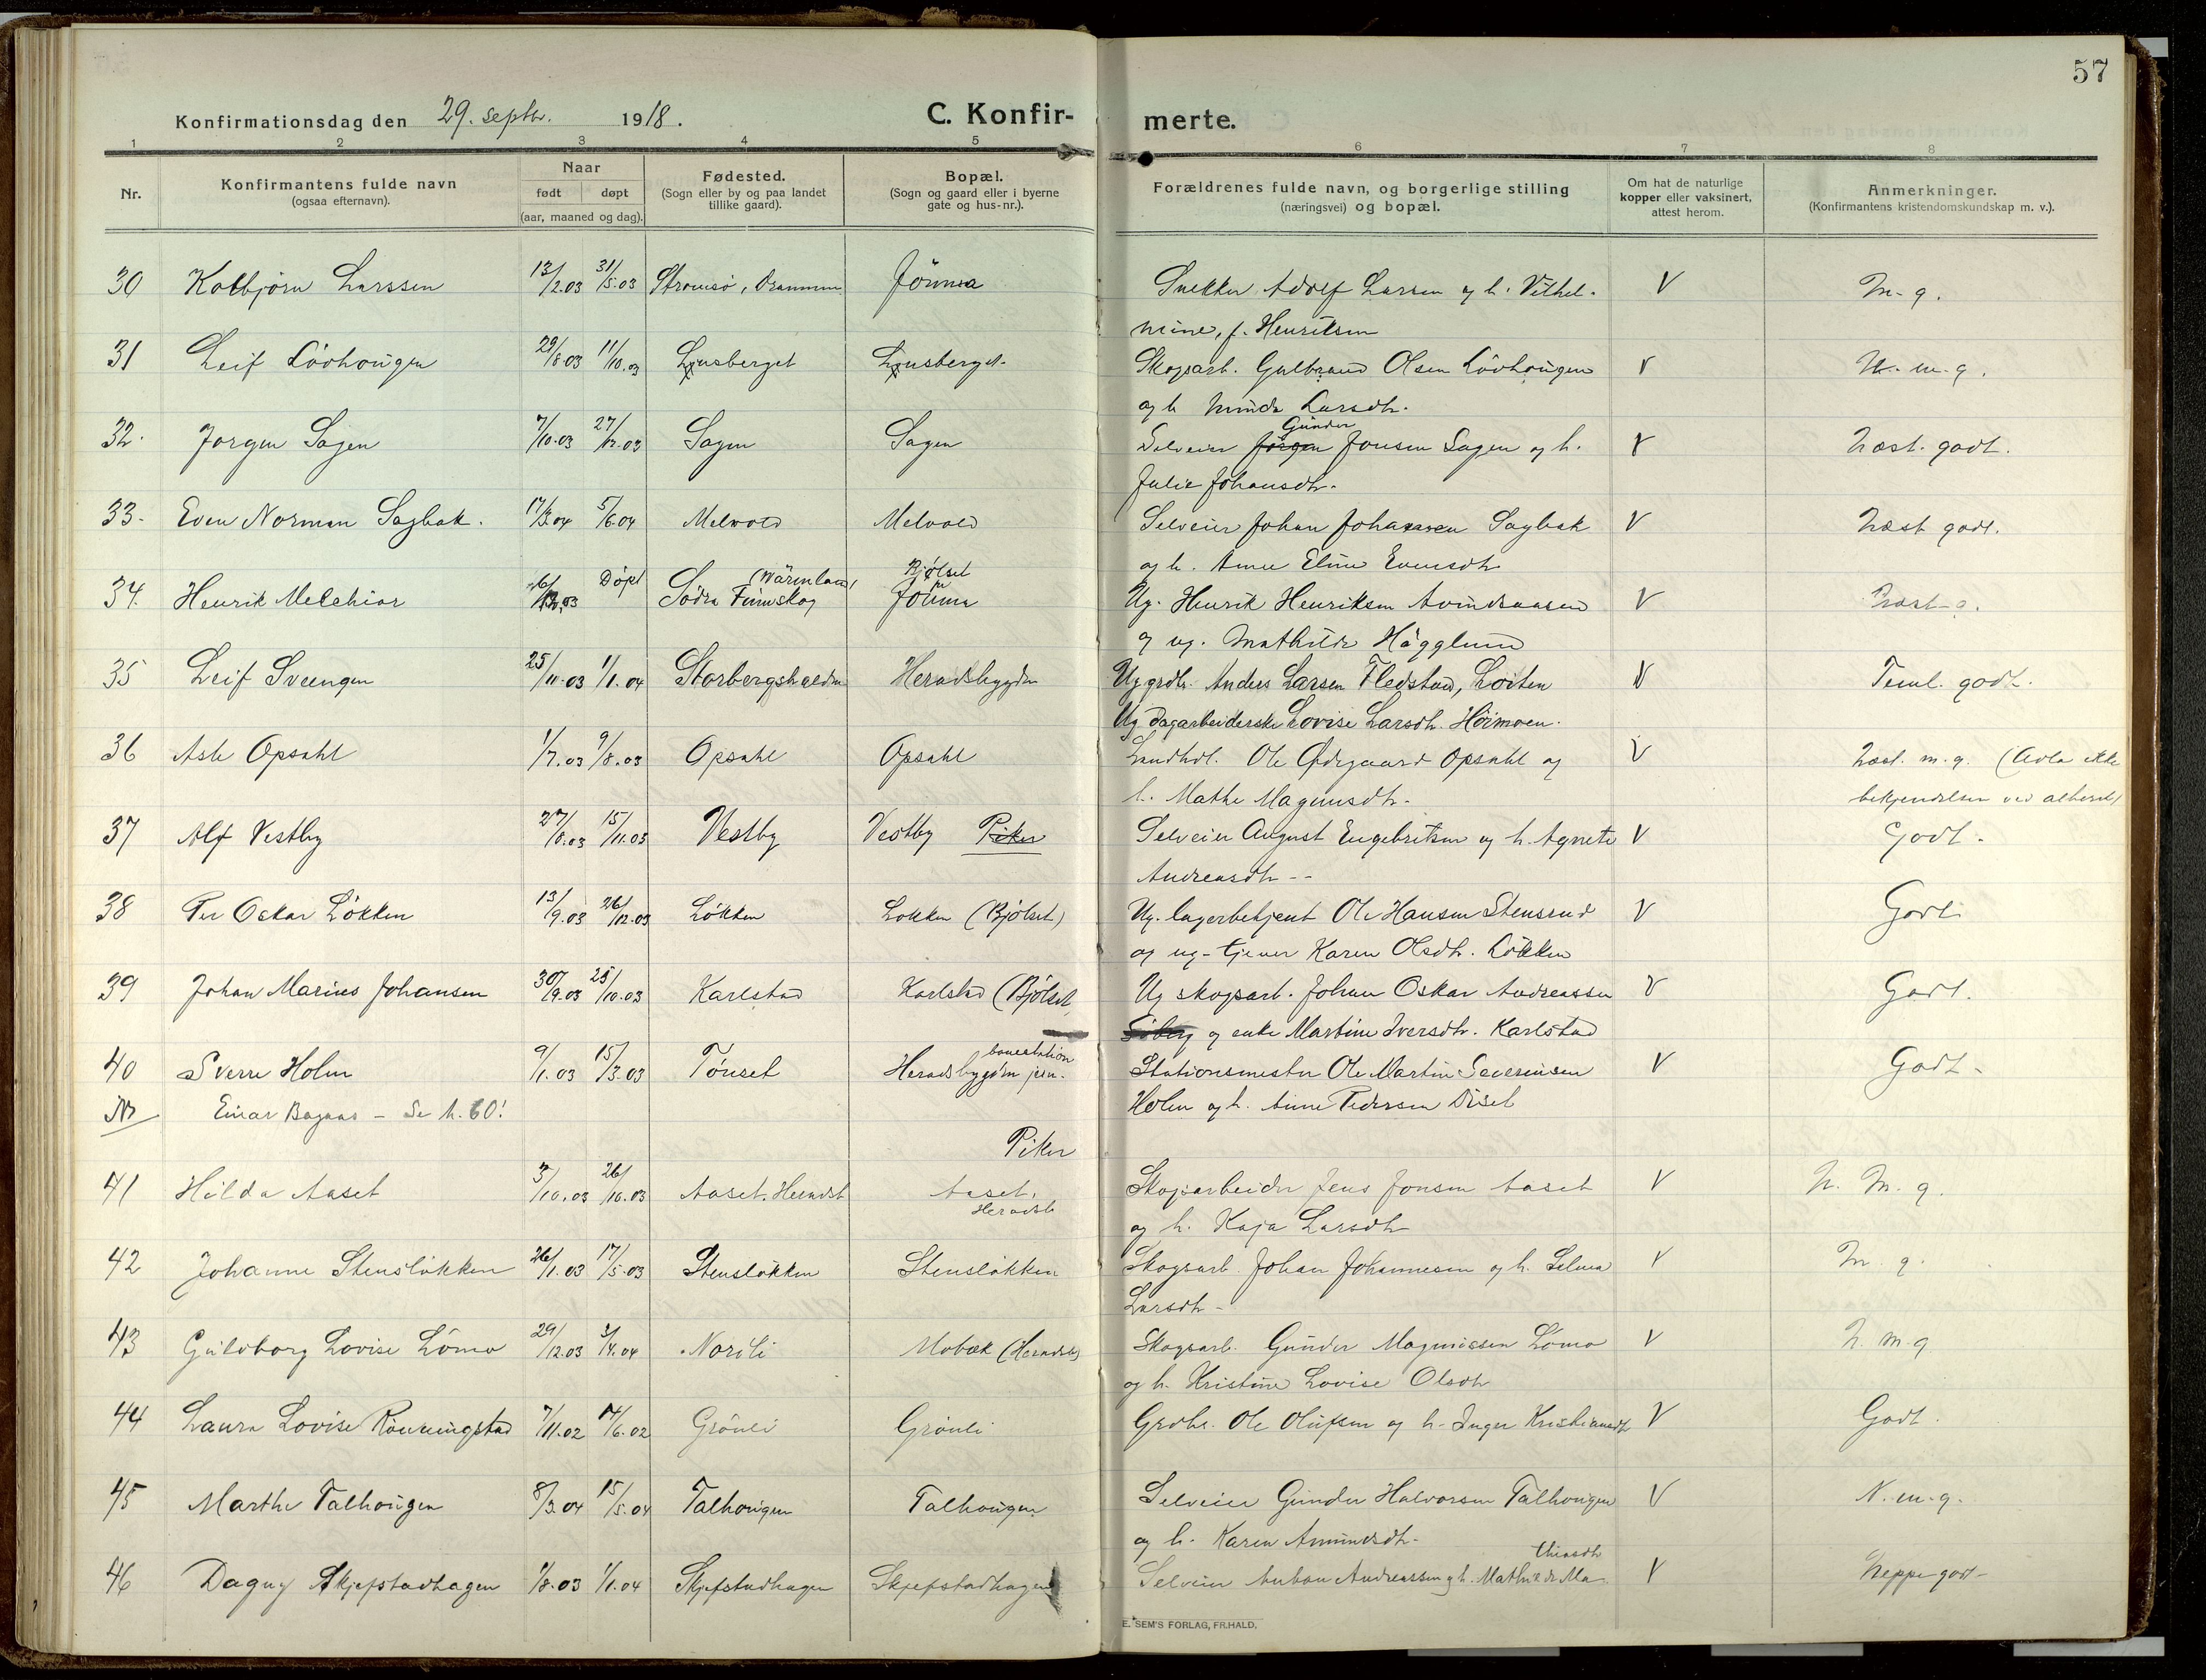 57
Konfirmationsdag den 29. septbr. 1918.
C. Konfir-merte.
1 2 3 4 5 6 7 8
Nr.
Konfirmantens fulde navn
(ogsaa efternavn).
Naar
født døpt
(aar, maaned og dag).
Fødested.
(Sogn eller by og paa landet
tillike gaard).
Bopæl.
(Sogn og gaard eller i byerne
gate og hus-nr.).
Forældrenes fulde navn, og borgerlige stilling
(næringsvei) og bopæl.
Om hat de naturlige
kopper eller vaksinert,
attest herom.
Anmerkninger.
(Konfirmantens kristendomskundskap m. v.).
30 Kolbjørn Larssen 13/2.03 31/5.03 Strømsö, Drammen Jömna Snekker Adolf Larsen og h. Vilhel- V M-g.
mine, f. Henriksen
31 Leif Lövhougen 29/8.03 11/10.03 Ljusberget Ljusberget Skogsarb. Gulbrand Olsen Lövhougen V N. m. g.
og h. Minda Larsdtr.
32. Jorgen Sagen 7/10.03 27/12.03 Sagen Sagen Selveier Jörgen Gunder Jonsen Sagen og h. V Næst. godt.
Julie Johansdtr.
33. Even Norman Sagbak. 17/3.04 5/6.04 Melvold Melvold Selveier Johan Johansen Sagbak V Næst godt.
og h. Anne Eline Evensdtr
34. Henrik Melchior 26/12.03 Döpt Södra Finnskog (Wärmland) Bjølset Jömna Ug. Henrik Henriksen Avindsaasen V Næst-g.
og ug. Mathilde Hägglund
35 Leif Sveengen 25/10.03 1/1.04 Storbergshalden Heradsbygden Ug grdbr. Anders Larsen Fledstad, Löiten V Teml. godt.
Ug dagarbeiderske Lovise Larsdtr. Höimoen.
36 Asle Opsahl 1/7.03 9/8.03 Opsahl Opsahl Landhdl. Ole Ødegaard Opsahl og V Næst. m.g. (Avla ikke
h. Mathe Magnusdtr. bekjendelsen ved alteret)
37 Alf Vestby 27/8.03 15/11.03 Vestby Vestby Piker Selveier August Engebretsen og h. Agnete V Godt.
Andreasdtr --
38 Per Oskar Lökken 13/9.03 26/12.03 Lökken Lokken (Bjölset) Ug. lagerbetjent Ole Hansen Stensrud V Godt
og ug. tjener Karen Olsdtr. Lökken
39 Johan Marius Johansen 30/9.03 25/10.03 Karlstad Karlstad (Bjölset) Ug skogsarb. Johan Oskar Andreassen V Godt.
og enke Martine Iversdtr. Karlstad
40 Sverre Holm 9/1.03 15/3.03 Tönset Heradsbygden jern-banestation Stationsmester Ole Martin Severinsen V Godt-
NB Einar Bagaas - Se h. 60! Holm og h. Anne Pedersen Diset
Piker
41 Hilda Aaset 3/10.03 26/10.03 Aaset. Heradsb Aaset. Heradsb Skogsarbeider Jens Jonsen Aaset V N. M. g.
og h. Kaja Larsdtr
42 Johanne Stenslökken 26/1.03 17/5.03 Stenslökken Stenslökken Skogsarb Johan Johannesen og h. Selma V M. g.
Larsdtr-
43 Gulborg Lovise Lömo 29/12.03 3/4.04 Nordli Mobæk (Heradsb) Skogsarb. Gunder Magnussen Lömo V N. m. g
og h. Kristine Lovise Olsdtr
44 Laura Lovise Rönningstad 7/11.02 14/6.02 Grönli Grönli Grdbr. Ole Olufsen og h. Inger Kristiansdtr V Godt.
45 Marthe Talhougen 8/3.04 15/5.04 Talhougen Talhougen Selveier Gunder Halvorsen Talhougen V N. m. g.
og h. Karen Amundsdtr.
46 Dagny Skjefstadhagen 1/8.03 1/1.04 Skjefstadhagen Skjefstadhagen Selveier Anton Andreassen og h. Mathilde Ma-thiasdtr V Neppe godt-
E. SEM'S FORLAG, FR.HALD.